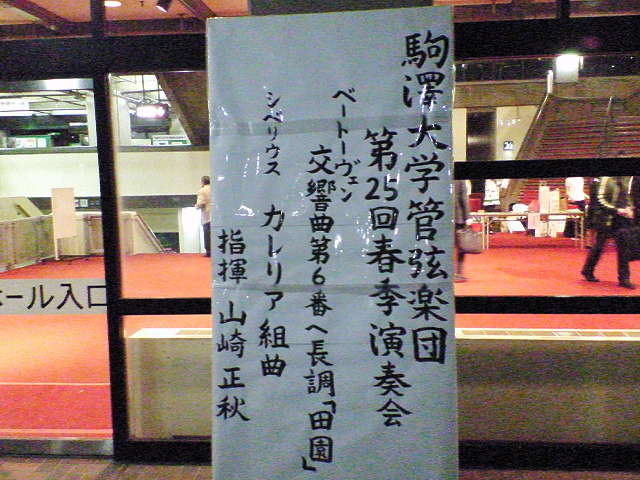 駒澤大学管弦楽団
第25回春季演奏会
ベートーヴェン
交響曲第6番ヘ長調「田園」
シベリウス カレリア組曲
指揮 山崎正秋
ホール入口